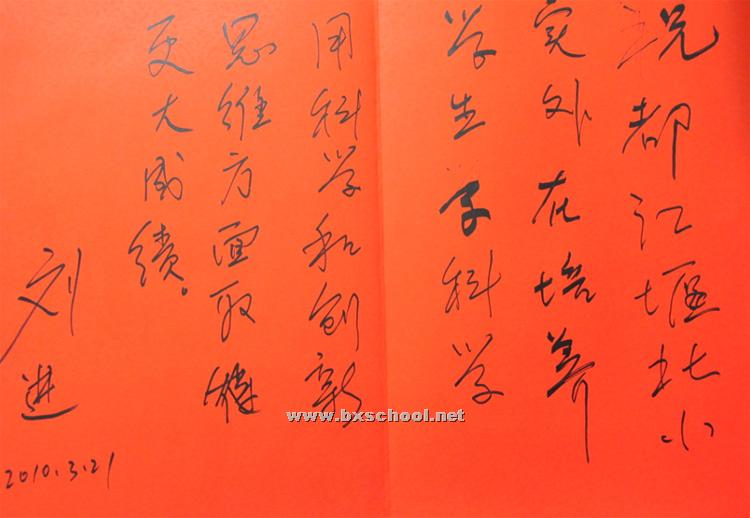 祝都江堰北小
实外在培养
学生学科学
用科学和创新
思维方面取得
更大成绩。
刘进
2010.3.21
www.bxschool.net